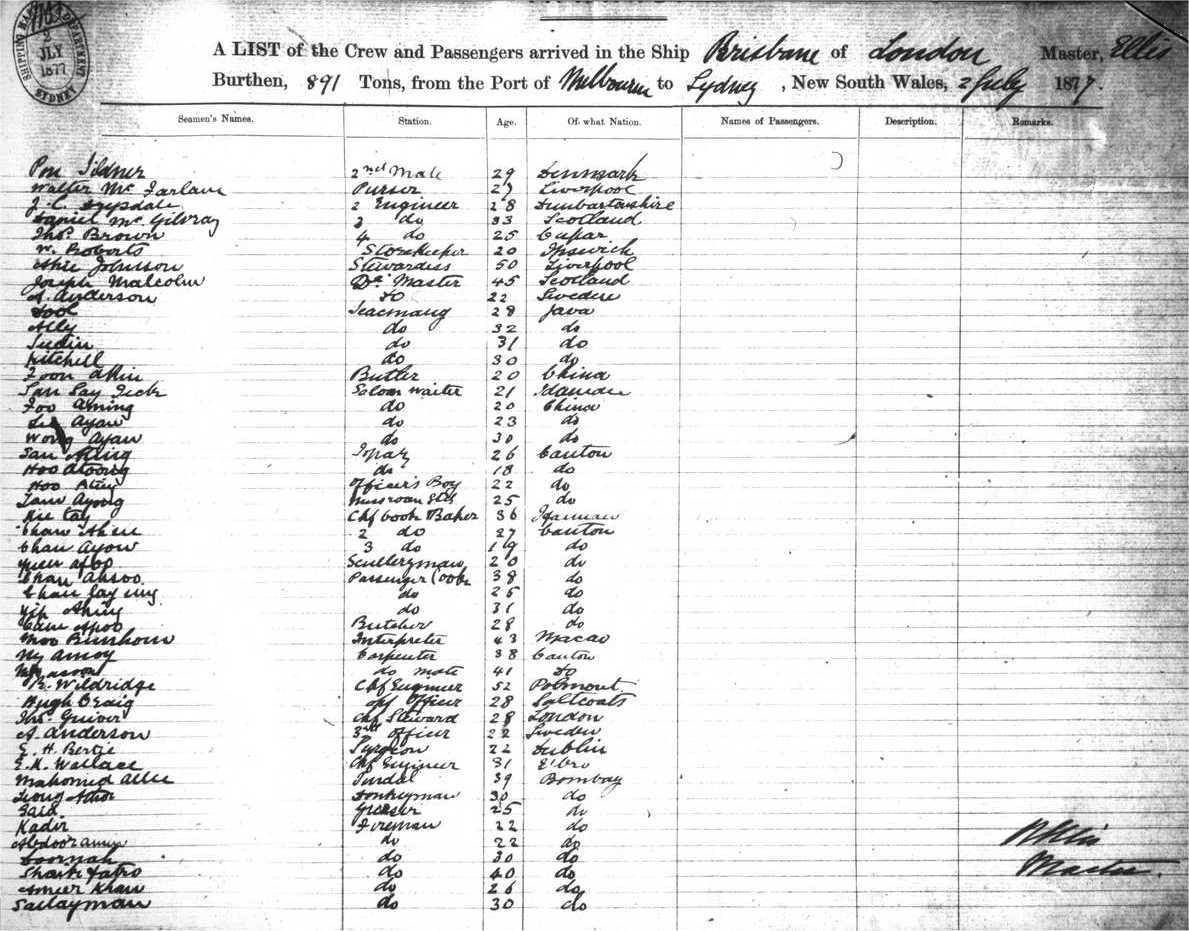 SHIPPING MASTER'S DEPARTMENT
2
JLY
1877
SYDNEY
A LIST of the Crew and Passengers arrived in the Ship Brisbane of London Master, Ellis
Burthen, 891 Tons, from the Port of Melbourne to Sydney, New South Wales, 2 July 1877.
Seamen's Names. Station. Age. Of what Nation. Names of Passengers. Description. Remarks.
2nd Mate 29 Denmark
Walter Mc Farlane Purser 27 Liverpool
J. C. Drysdale 2 Engineer 28 Dunbartonshire
Daniel Mc Gilvray 3 do 33 Scotland
Thos. Brown 4 do 25 Cupar
W. Roberts Storekeeper 20 Ipswich
Johnson Stewardess 50 Liverpool
Joseph Malcolm Qr. Master 45 Scotland
A. Anderson do 22 Sweden
28 Java
Ally do 32 do
do 31 do
Kitchell do 30 do
Butler 20 China
Saloon Waiter 21
Foo Aming do 20 China
Ayan do 23 do
Wong Ayan do 30 do
San 26 Canton
Hoo do 18 do
Hoo Officer's Boy 22 do
Ayong 25 do
Chf Cook Baker 36
Chan 2 do 27 Canton
Chan Ayow 3 do 19 do
Scullery man 20 do
Chan Ahsoo. Passenger Cook 38 do
Chan do 25 do
Yip do 31 do
Butcher 28 do
Interpreter 43 Macao
Ny Amoy Carpenter 38 Canton
do mate 41 do
R. Wildridge Chf Engineer 52 Polmont
Hugh Craig Officer 28 Saltcoats
Thos. Guiver Chf Steward 28 London
A. Anderson 3rd Officer 22 Sweden
E. H. Bertie Surgeon 22 Dublin
E. K. Wallace Chf Engineer 31
Mahomed Allee Tindal 39 Bombay
Donkeyman 30 do
Said Greaser 25 do
Kadir Fireman 22 do
do 22 do
do 30 do
do 40 do
Ameer Khan do 26 do
Sallayman do 30 do
Ellis
Master.